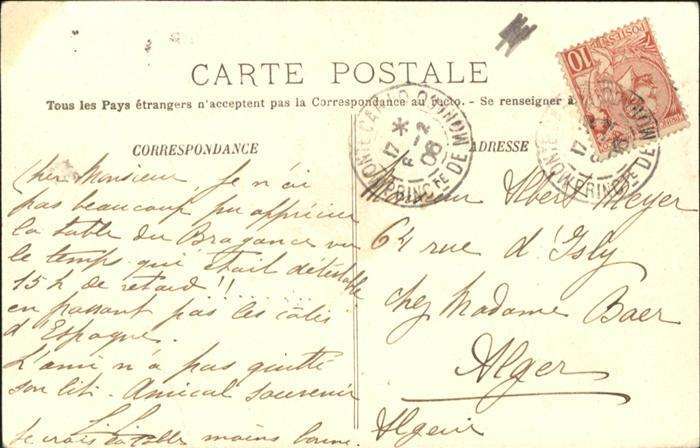 CARTE POSTALE
Tous les Pays étrangers n'acceptent pas la Correspondance au recto. - Se renseigner à
CORRESPONDANCE
Cher Monsieur, Je n'ai
pas beaucoup pu apprécier
la table du Bragance vu
le temps qui était détestable
15h de retard!!
en passant pas les côtes
d'Espagne.
L'ami n'a pas quitté
son lit. Amical souvenir
Je crois la table moins bonne.
ADRESSE
Monsieur Albert Meyer
64 rue d'Isly
chez Madame Baer
Alger
Algérie
MONTE CARLO
PRINC TÉ DE MONACO
17 *
2
06
POSTES
10